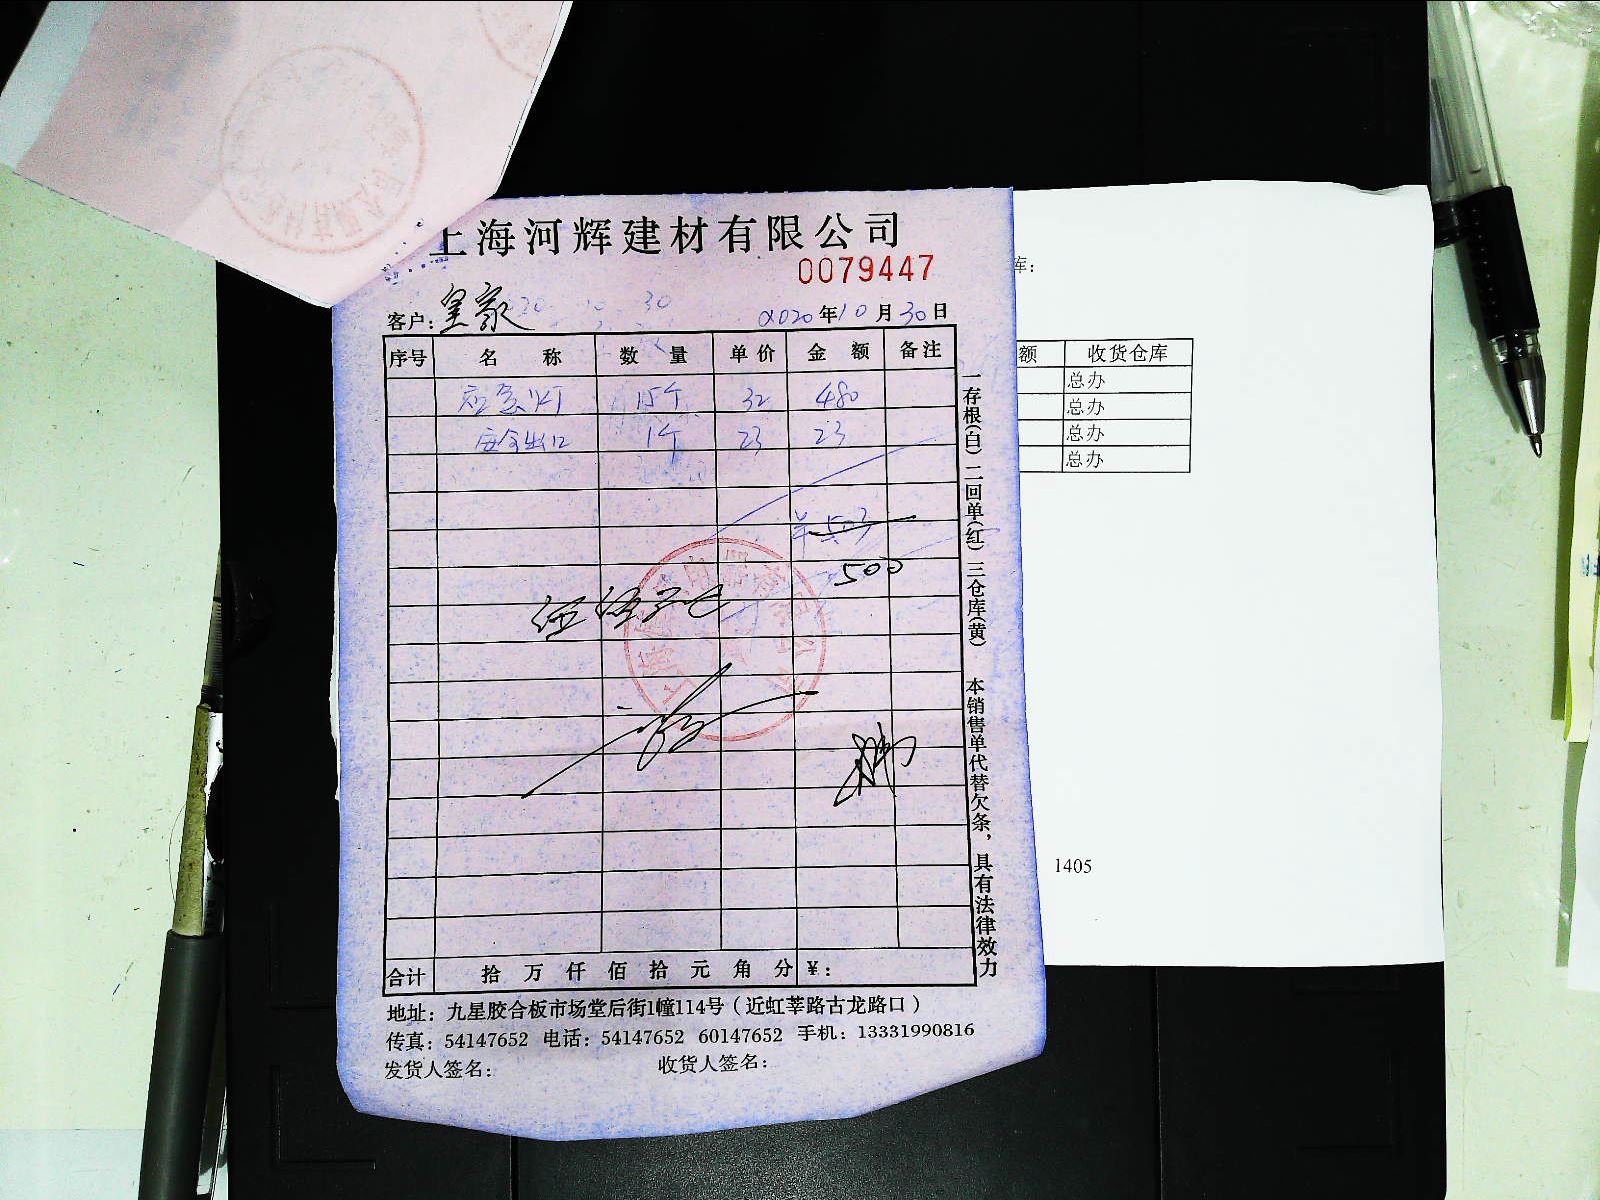 上海河辉建材有限公司
0079447
客户：皇家 2020年10月30日
序号 名称 数量 单价 金额 备注
应急灯 15个 32 480
安全出口 1个 23 23
共503
500
伍佰元正
合计 拾 万 仟 佰 拾 元 角 分 ¥：
地址：九星胶合板市场堂后街1幢114号（近虹莘路古龙路口）
传真：54147652 电话：54147652 60147652 手机：13331990816
发货人签名： 收货人签名：
一存根(白)二回单(红)三仓库(黄) 本销售单代替欠条，具有法律效力
库：
额 收货仓库
总办
总办
总办
总办
1405